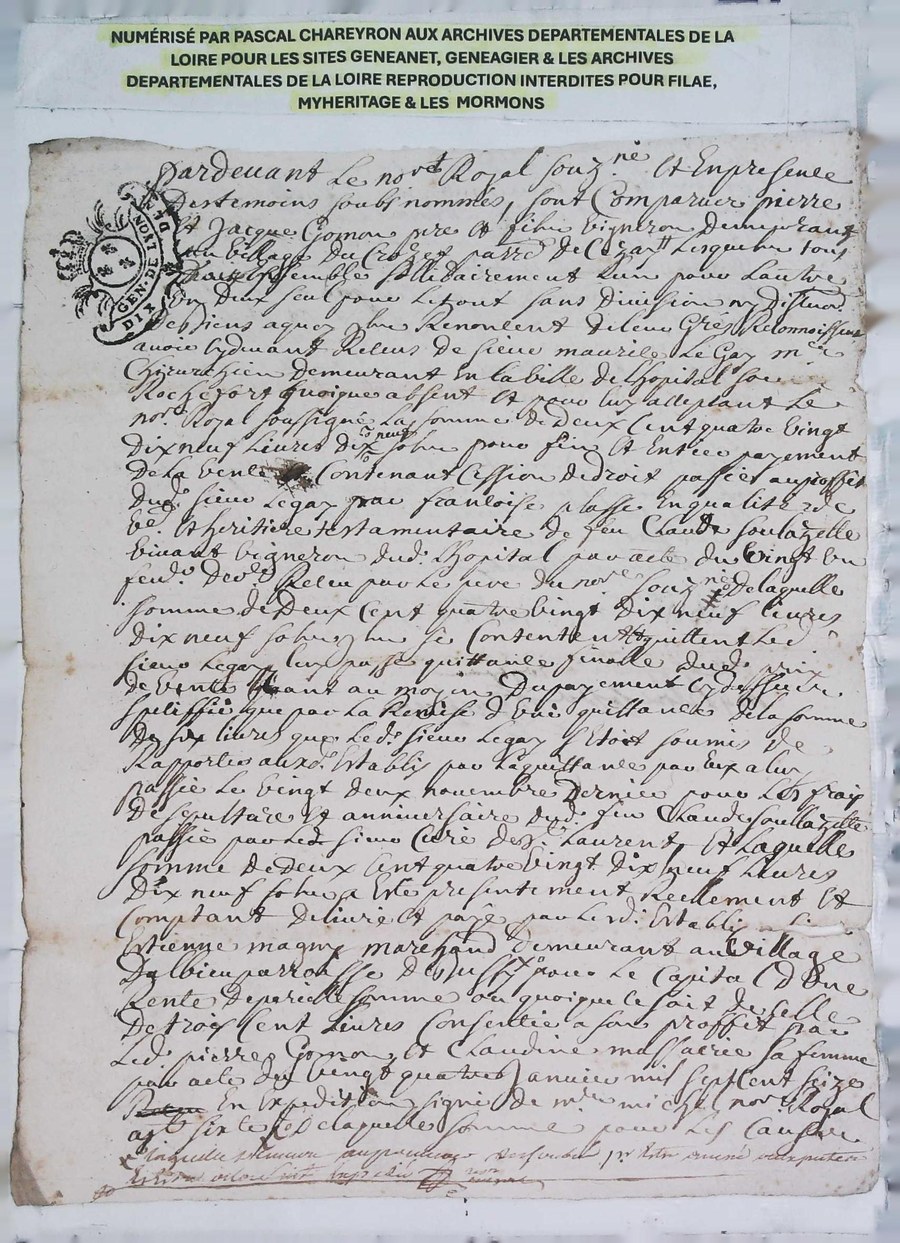 NUMÉRISÉ PAR PASCAL CHAREYRON AUX ARCHIVES DEPARTEMENTALES DE LA
LOIRE POUR LES SITES GENEANET, GENEAGIER & LES ARCHIVES
DEPARTEMENTALES DE LA LOIRE REPRODUCTION INTERDITES POUR FILAE,
MYHERITAGE & LES MORMONS
GEN. DE LION
DIX D
Pardevant Le no.re Royal souz.né Et Enpresence
Destemoins soubs nommés, sont Comparus pierre
Et Jacque Gonon pere Et fils Vigneron Demeurant
au Village du Crozet parr.e De Lesquels tous
Deux Ensemble sollidairement Lun pour Lautre
Un Deux seul pour Letout sans Division ny
Desbiens aquoy Renoncent Deleur Grés Reconnoissent
avoir Cydevant Receus De sieur maurile Le Gay m.e
Chirurgien Demeurant En la Ville de Lhopital sou
Rochefort quoique absent Et pour luy aceptant Le
no.re Royal soussigné La somme de Deux Cent quatre Vingt
Dix neuf Livres Dix neuf sols pour fin Et Entier payement
De La Vente Contenant Cession Dedroit passée auproffit
Dud. sieur Legay par francoise plasse Enqualité de
Et heritiere testamentaire de feu Claude soulazelle
Vivant Vigneron dud. Lhopital par acte du Vingt un
Receu par Le no.re Souz.né Delaquelle
somme de Deux Cent quatre Vingt Dix neuf Livres
Dix neuf sols se Contentent Et quittent Led.
sieur Legay luy passe quittance finalle dud. prix
De Vente tant au moyen Dupayement Cydessus
speciffié que par La Remise d'Une quittance dela somme
De six livres que Led. sieur Legay s'Etoit soumis de
Rapporter auxd. Establis par Laquittance par Eux a luy
passée Le Vingt deux novembre Dernier pour Les frais
De sepulture Et anniversaire Dud. feu Claude soulazelle
passée par Led. sieur Curé de S.t Laurent, Et Laquelle
somme De deux Cent quatre Vingt Dix neuf Livres
Dix neuf sols a Esté presentement Reellement Et
Comptant Delivré Et payé par Lesd. Establis a
Estienne magny marchand Demeurant au Village
Dalbieu parroisse de pour Le Capital d'Une
Rente De pareille somme ou quoique Ce soit De Celle
De trois Cent Livres Consentie a son proffit par
Led. pierre Gonon Et Claudine massacrier sa femme
par acte du Vingt quatre Janvier mil sept Cent seize
En Expedition signé de m.re michel no.re Royal
De laquelle somme pour Les Causes